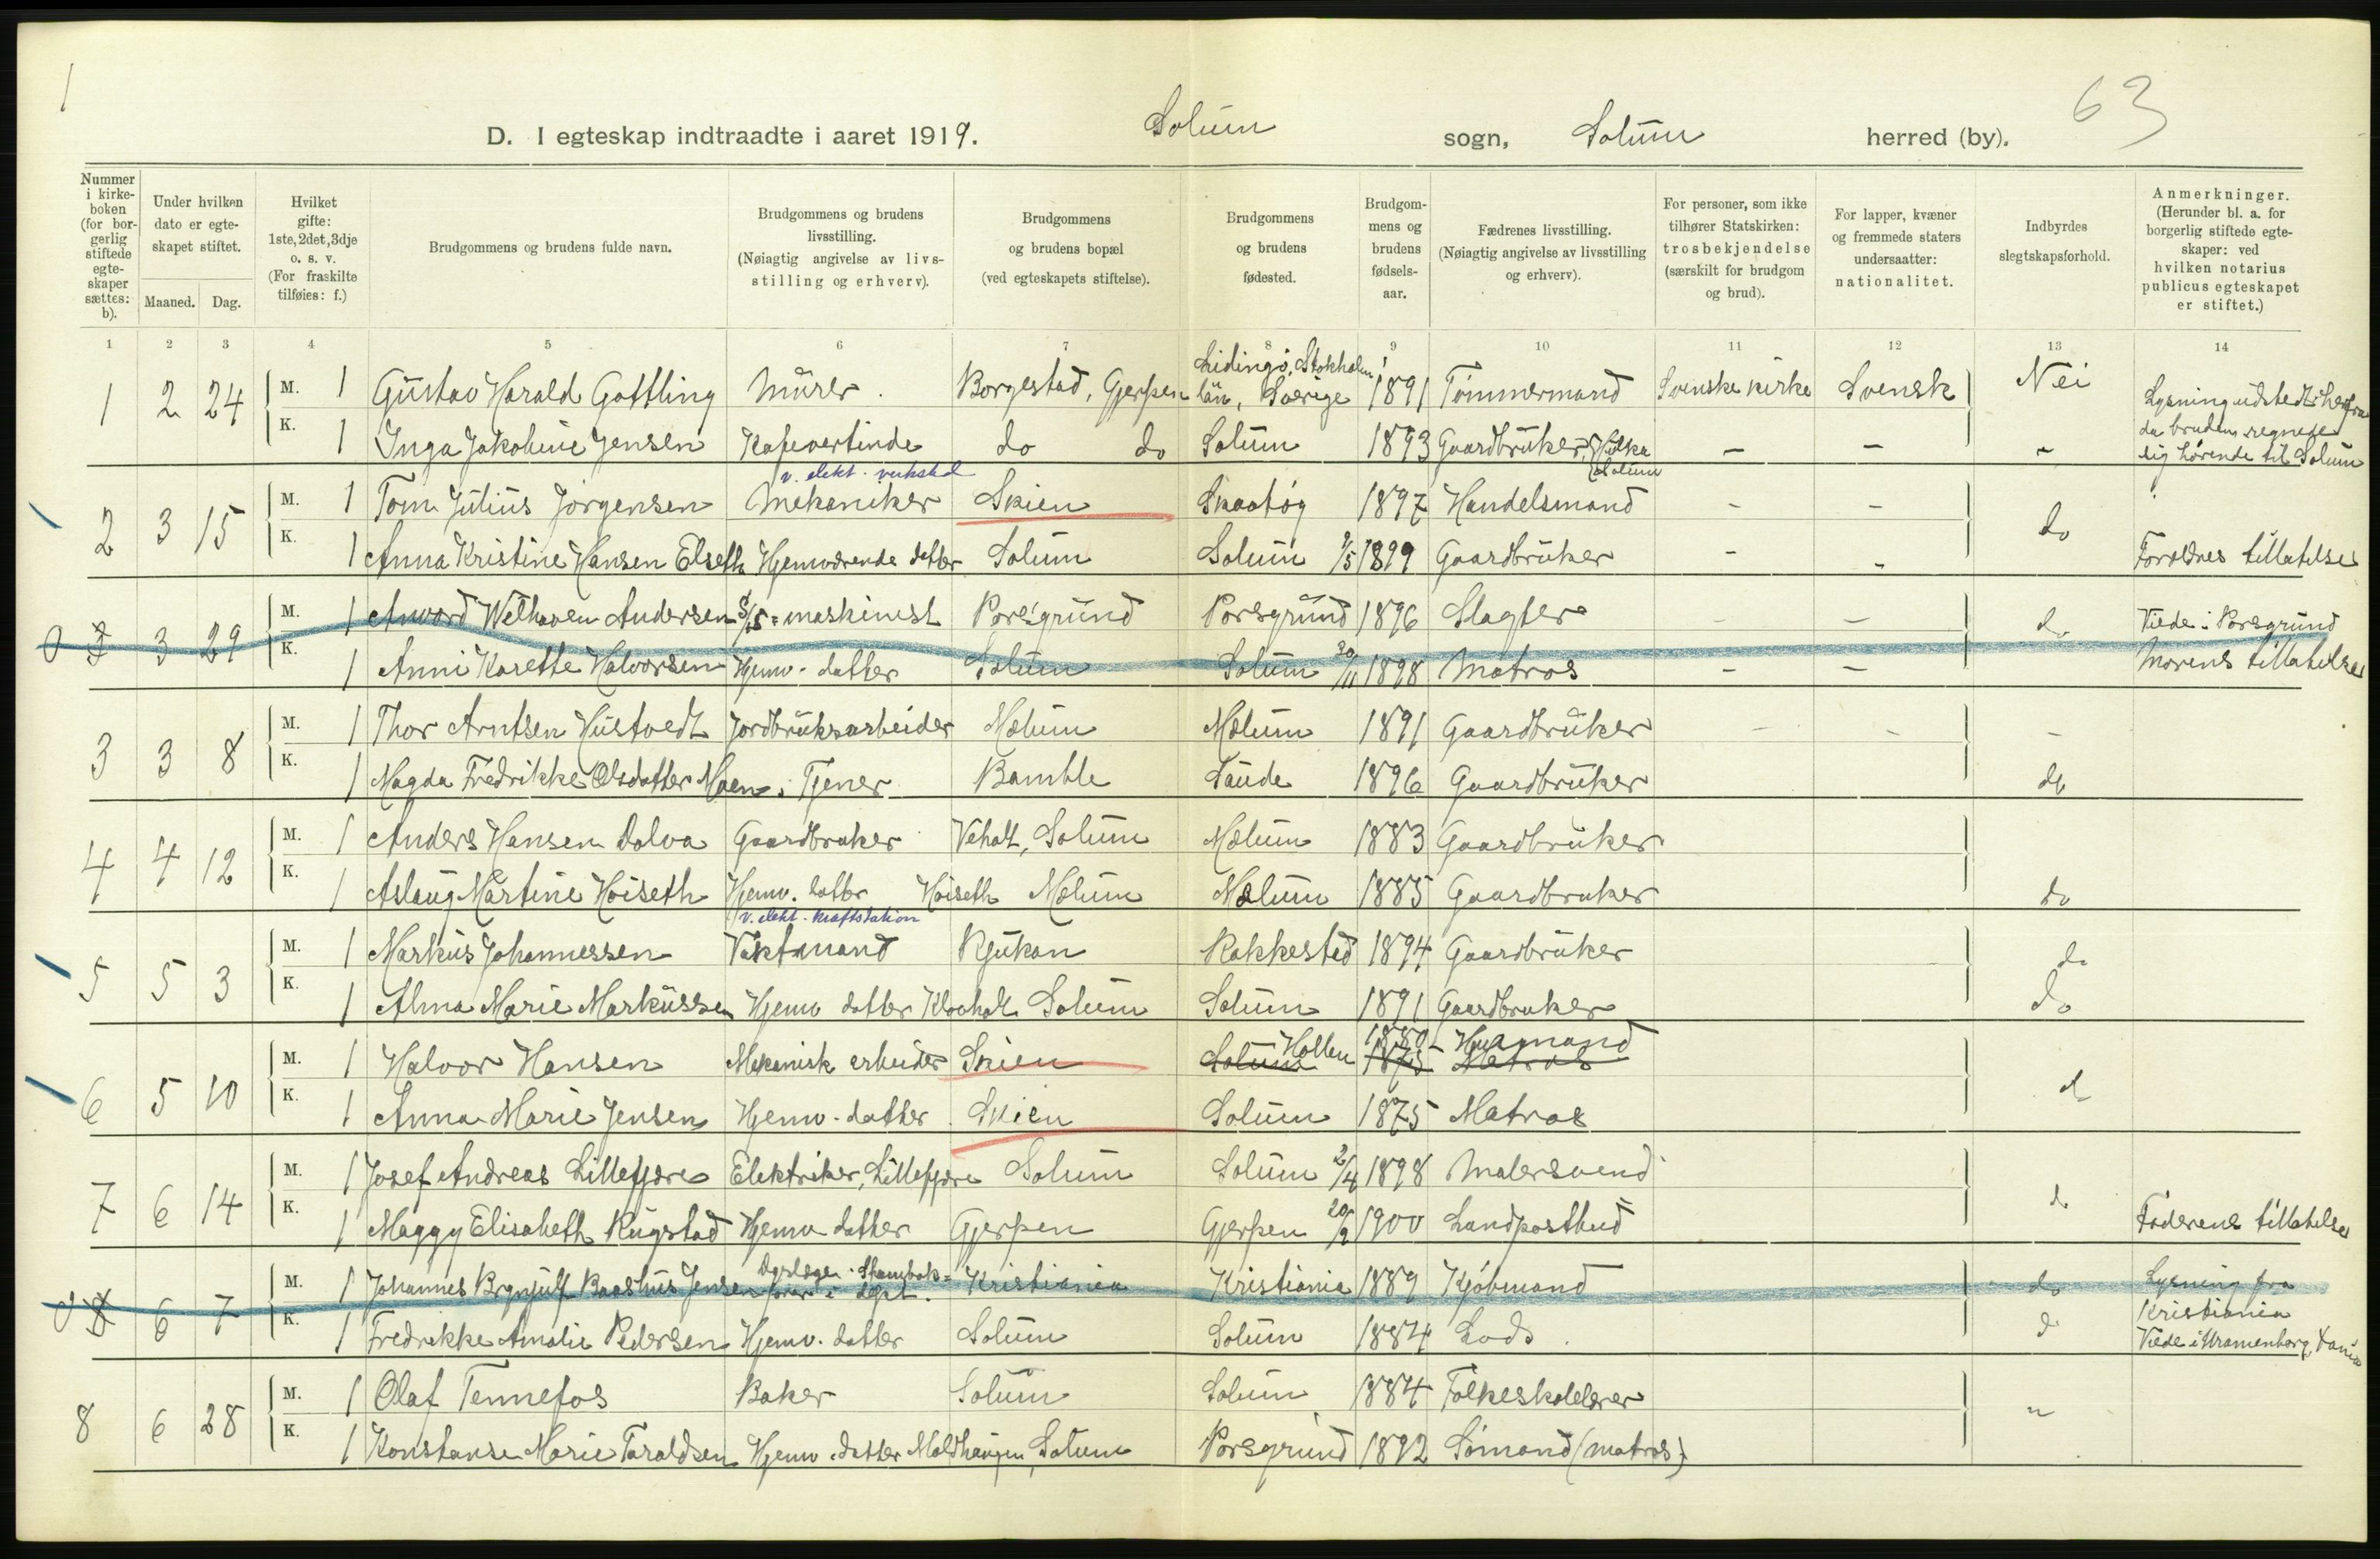 1
63
D. I egteskap indtraadte i aaret 1919. Solum sogn, Solum herred (by).
Nummer i kirkeboken (for borgerlig stiftede egteskaper sættes: b).
Under hvilken dato er egteskapet stiftet.
Maaned. Dag.
Hvilket gifte: 1ste, 2det, 3dje o. s. v. (For fraskilte tilføies: f.)
Brudgommens og brudens fulde navn.
Brudgommens og brudens livsstilling. (Nøiagtig angivelse av livsstilling og erhverv).
Brudgommens og brudens bopæl (ved egteskapets stiftelse).
Brudgommens og brudens fødested.
Brudgommens og brudens fødselsaar.
Fædrenes livsstilling. (Nøiagtig angivelse av livsstilling og erhverv).
For personer, som ikke tilhører Statskirken: trosbekjendelse (særskilt for brudgom og brud).
For lapper, kvæner og fremmede staters undersaatter: nationalitet.
Indbyrdes slegtskapsforhold.
Anmerkninger. (Herunder bl. a. for borgerlig stiftede egteskaper: ved hvilken notarius publicus egteskapet er stiftet.)
1 2 3 4 5 6 7 8 9 10 11 12 13 14
1 2 24 M. 1 Gustav Harald Gottling Murer. Borgestad, Gjerpen Lidingö, Stokholm län, Sverige 1891 Tømmermand Svenske kirke Svensk Nei
K. 1 Inga Jakobine Jensen Kafevertinde do do Solum 1893 Gaardbruker, Solum - - -
Lysning udstedt herfra da bruden regnede sig hørende til Solum
2 3 15 M. 1 Tom Julius Jørgensen Mekaniker v. elekt. verksted Skien Skaatøy 1897 Handelsmand - - do
K. 1 Anna Kristine Hansen Elseth Hjemværende datter Solum Solum 9/5 1899 Gaardbruker - - Forældres tillatelse
0 3 3 29 M. 1 Anvord Welhaven Andersen S/S = maskinist Porsgrund Porsgrund 1896 Slagter - - do Viede i Porsgrund
K. 1 Anni Karette Halvorsen Hjemv. datter Solum Solum 20/11 1898 Matros - - Morens tillatelse
3 3 8 M. 1 Thor Arntsen Hustvedt Jordbruksarbeider Melum Melum 1891 Gaardbruker - - -
K. 1 Magda Fredrikke Olsdatter Moen. Tjener Bamble Saude 1896 Gaardbruker do
4 4 12 M. 1 Anders Hansen Dolva Gaardbruker Veholt, Solum Melum 1883 Gaardbruker
K. 1 Aslaug Martine Høiseth Hjemv. datter Høiseth Melum Melum 1885 Gaardbruker do
5 5 3 M. 1 Markus Johannessen Vaktmand v. elekt. kraftstation Rjukan Rakkestad 1894 Gaardbruker do
K. 1 Alma Marie Markussen Hjemv datter Klovholt Solum Solum 1891 Gaardbruker do
6 5 10 M. 1 Halvor Hansen Mekanisk arbeider Skien Solum Hollen 1875 1880 Matros Husmand
K. 1 Anna Marie Jensen Hjemv. datter. Skien Solum 1875 Matros d
7 6 14 M. 1 Josef Andreas Lillefjære Elektriker, Lillefjære Solum Solum 2/4 1898 Malersvend
K. 1 Maggy Elisabeth Rugstad Hjemv datter Gjerpen Gjerpen 20/2 1900 Landpostbud d Faderens tillatelse
0 8 6 7 M. 1 Johannes Brynjulf Baashus Jensen Kristiania Kristiania 1889 Kjøbmand do Lysning fra Kristiania
K. 1 Fredrikke Amalie Pedersen Hjemv. datter Solum Solum 1884 Lods. d Viede i Uranienborg, Krania
8 6 28 M. 1 Olaf Tennefos Baker Solum Solum 1884 Folkeskolelærer
K. 1 Konstanse Marie Taraldsen Hjemv. datter Moldhaugen, Solum Porsgrund 1892 Sømand (matros) "